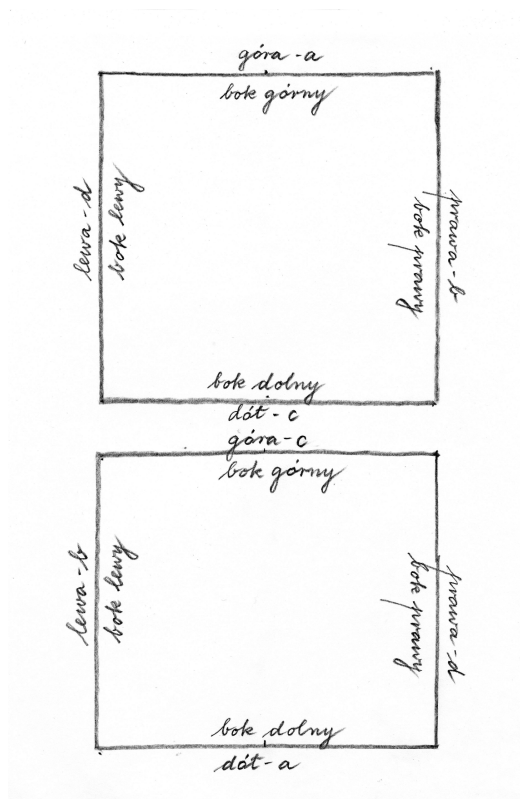 góra - a
bok górny
lewa - d
bok lewy
bok prawy
prawa - b
bok dolny
dół - c
góra - c
bok górny
lewa - b
bok lewy
bok prawy
prawa - d
bok dolny
dół - a